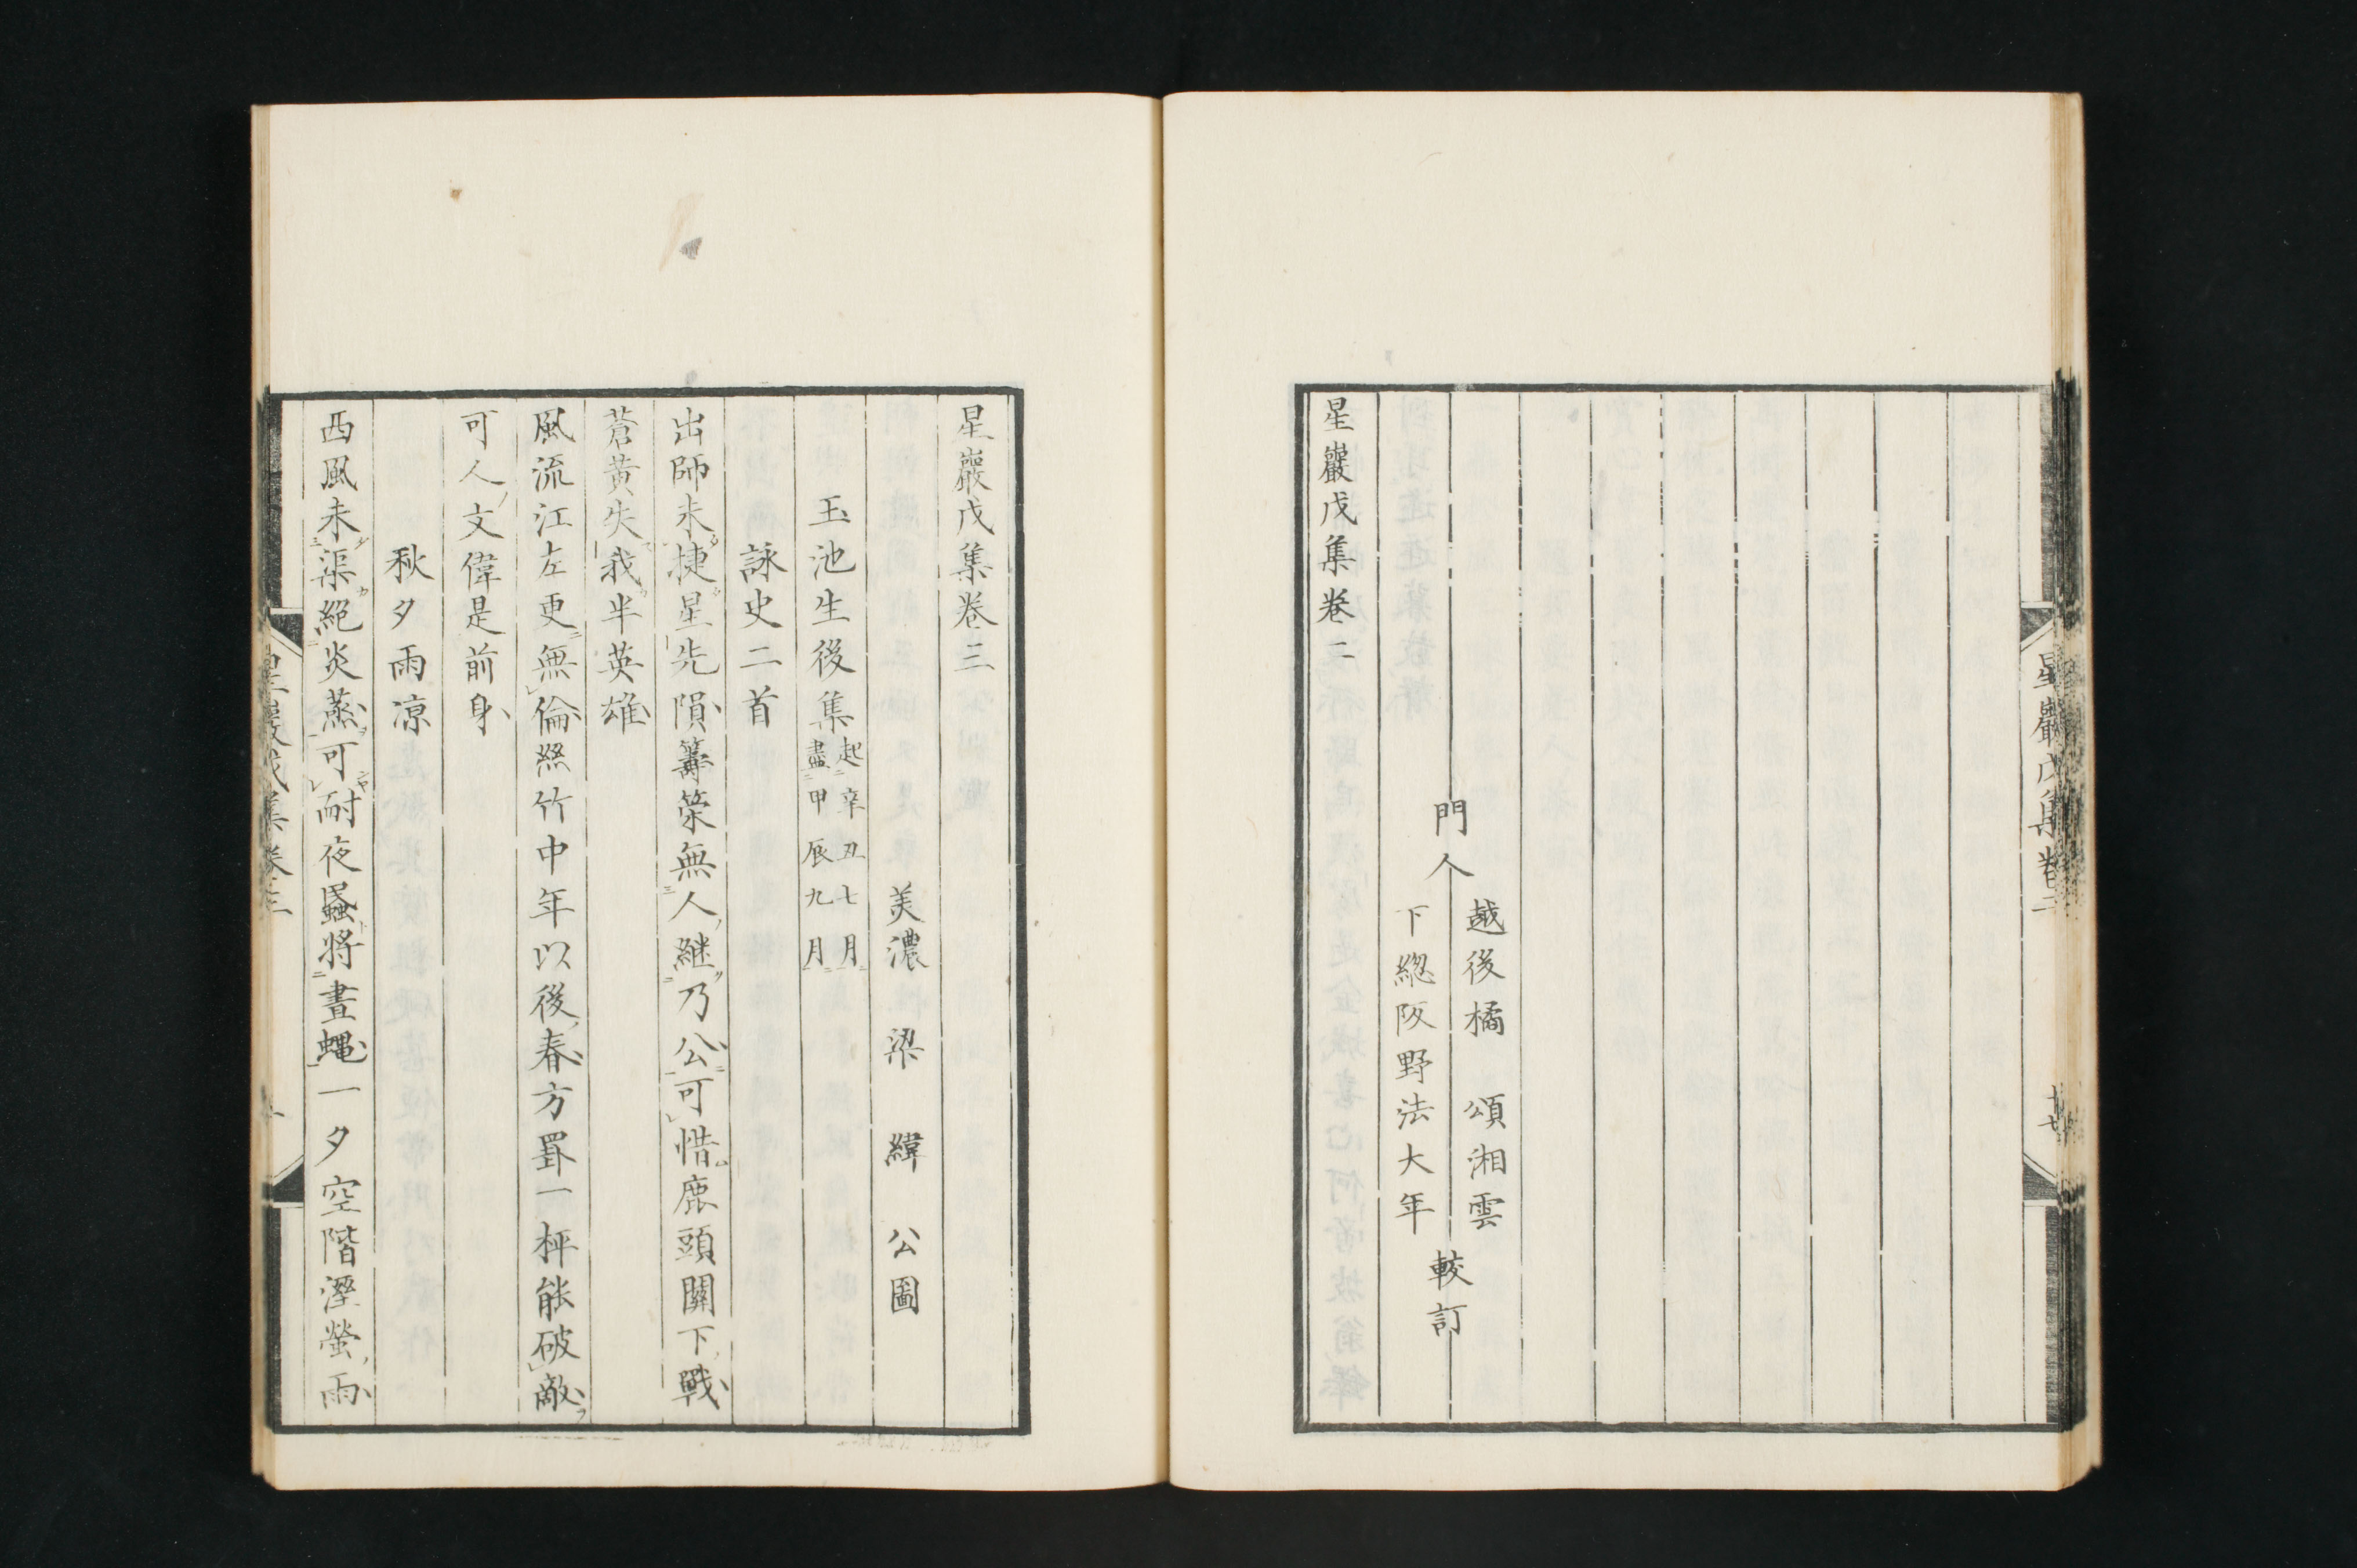 星巖戊集卷二
十七
門人
越後橘 頌湘雲
下總阪野法大年
較訂
星巖戊集卷二
星巖戊集卷三
美濃 梁 緯 公圖
玉池生後集
起辛丑七月
盡甲辰九月
詠史二首
出師未捷星先隕籌策無人継乃公可惜鹿頭關下戰
蒼黃失我半英雄
風流江左更無倫絲竹中年以後春方罫一枰能破敵
可人文偉是前身
秋夕雨凉
西風未渠絕炎蒸可耐夜蟁將晝蠅一夕空階溼螢雨
星巖戊集卷三